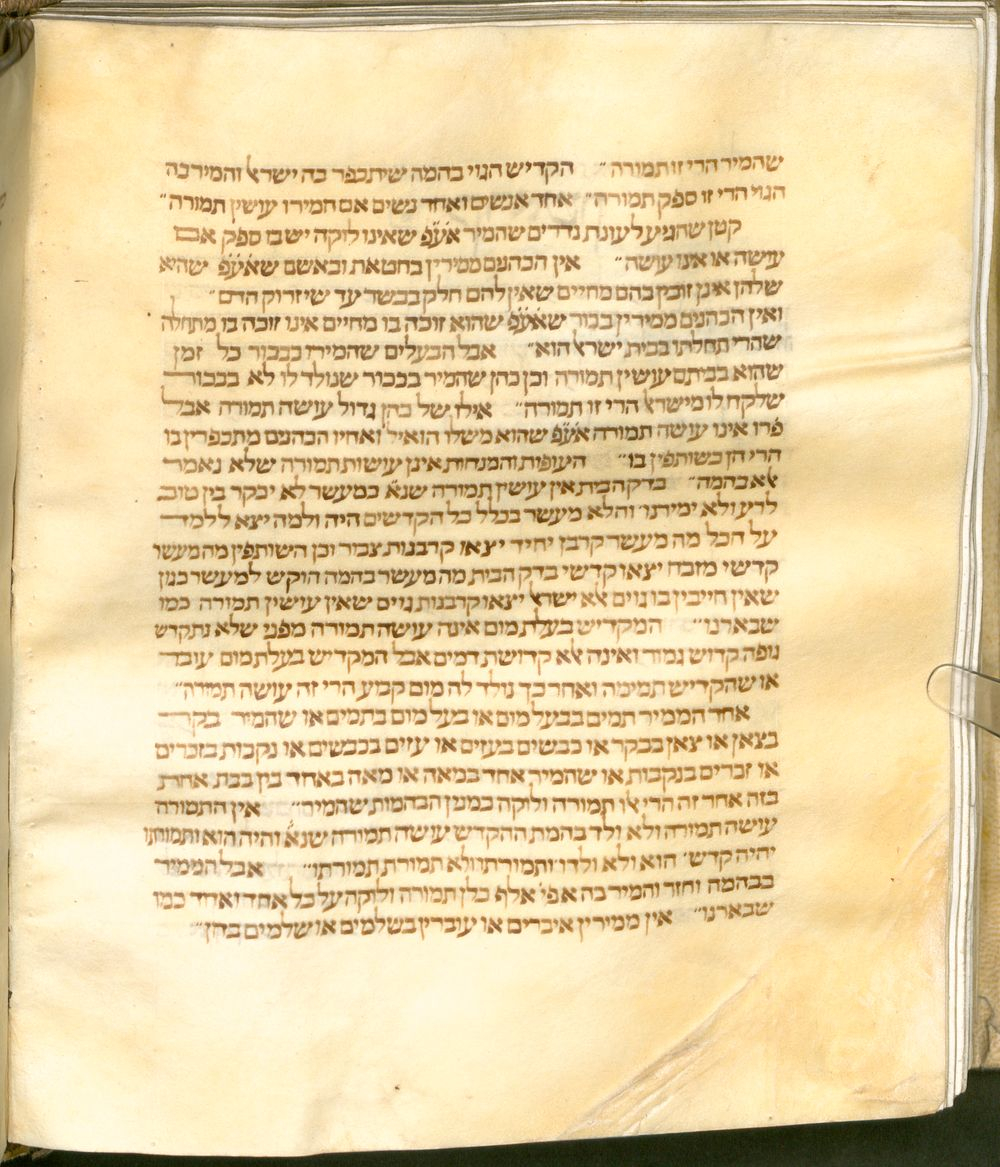 שהמיר הרי זו תמורה״ הקדיש הגוי בהמה שיתכפר בה ישראל והמיר בה
הגוי הרי זו ספק תמורה״ אחד אנשים ואחד נשים אם המירו עושין תמורה״
קטן שהגיע לעונת נדרים שהמיר אעפ שאינו לוקה יש בו ספק אם
עושה או אינו עושה״ אין הכהנים ממירין בחטאת ובאשם שאעפ שהיא
שלהן אינן זוכין בהם מחיים שאין להם חלק בבשר עד שיזרוק הדם״
ואין הכהנים ממירין בכור שאעפ שהוא זוכה בו מחיים אינו זוכה בו מתחלה
שהרי תחלתו בבית ישראל הוא״ אבל הבעלים שהמירו בבכור כל זמן
שהוא בביתם עושין תמורה וכן כהן שהמיר בבכור שנולד לו לא בבכור
שלקח לו מישראל הרי זו תמורה״ אילו של כהן גדול עושה תמורה אבל
פרו אינו עושה תמורה אעפ שהוא משלו הואיל ואחיו הכהנים מתכפרין בו
הרי הן כשותפין בו״ העופות והמנחות אינן עושות תמורה שלא נאמר
אלא בהמה״ בדק הבית אין עושין תמורה שנא כמעשר לא יבקר בין טוב
לרע ולא ימירנו והלא מעשר בכלל כל הקדשים היה ולמה יצא ללמד
על הכל מה מעשר קרבן יחיד יצאו קרבנות צבור וכן השותפין מה מעשר
קדשי מזבח יצאו קדשי בדק הבית מה מעשר בהמה הוקש למעשר כגון
שאין חייבין בו גוים אלא ישראל יצאו קרבנות גוים שאין עושין תמורה כמו
שבארנו״ המקדיש בעלת מום אינה עושה תמורה מפני שלא נתקדש
גופה קדוש גמור ואינה אלא קדושת דמים אבל המקדיש בעלת מום עובר
או שהקדיש תמימה ואחר כך נולד לה מום קבוע הרי זה עושה תמורה״
אחד הממיר תמים בבעל מום או בעל מום בתמים או שהמיר בקר
בצאן או צאן בבקר או כבשים בעזים או עזים בכבשים או נקבות בזכרים
או זכרים בנקבות או שהמיר אחד במאה או מאה באחד בין בבת אחת
בזה אחר זה הרי אלו תמורה ולוקה כמנין הבהמות שהמיר״ אין התמורה
עושה תמורה ולא ולד בהמת ההקדש עושה תמורה שנא והיה הוא ותמורתו
יהיה קדש׳ הוא ולא ולדו ותמורתו ולא תמורת תמורתו״ אבל הממיר
בבהמה וחזר והמיר בה אפי׳ אלף כלן תמורה ולוקה על כל אחד ואחד כמו
שבארנו״ אין ממירין איברים או עוברין בשלמים או שלמים בהן״